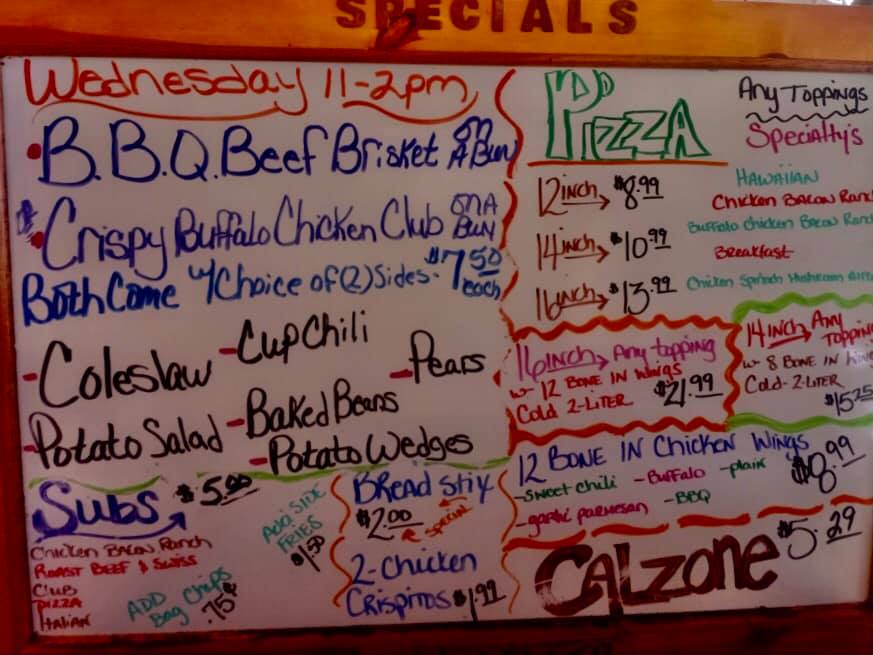 SPECIALS
Wednesday 11-2pm
B.B.Q. Beef Brisket on A Bun
Crispy Buffalo Chicken Club on A Bun
Both Come w/ Choice of (2) Sides. $7.50 each
- Coleslaw - Cup Chili - Pears
- Potato Salad - Baked Beans
- Potato Wedges
Subs $5.00
Chicken Bacon Ranch
Roast Beef & Swiss
Club
Pizza
Italian
Add Side Fries $1.50
ADD Bag Chips .75¢
Bread Stix
$2.00 Special
2-Chicken
Crispitos $1.99
Pizza
12 inch → $8.99
14 inch → $10.99
16 inch → $13.99
Any Toppings
Specialty's
Hawaiian
Chicken Bacon Ranch
Buffalo Chicken Bacon Ranch
Breakfast
Chicken Spinach Mushroom
16 inch → Any topping
w- 12 Bone in wings
Cold 2-Liter $21.99
14 inch → Any
Topping
w- 8 Bone in
Cold- 2-Liter
12 Bone in Chicken Wings $8.99
-Sweet Chili -Buffalo -plain
-garlic parmesan -BBQ
Calzone $5.29